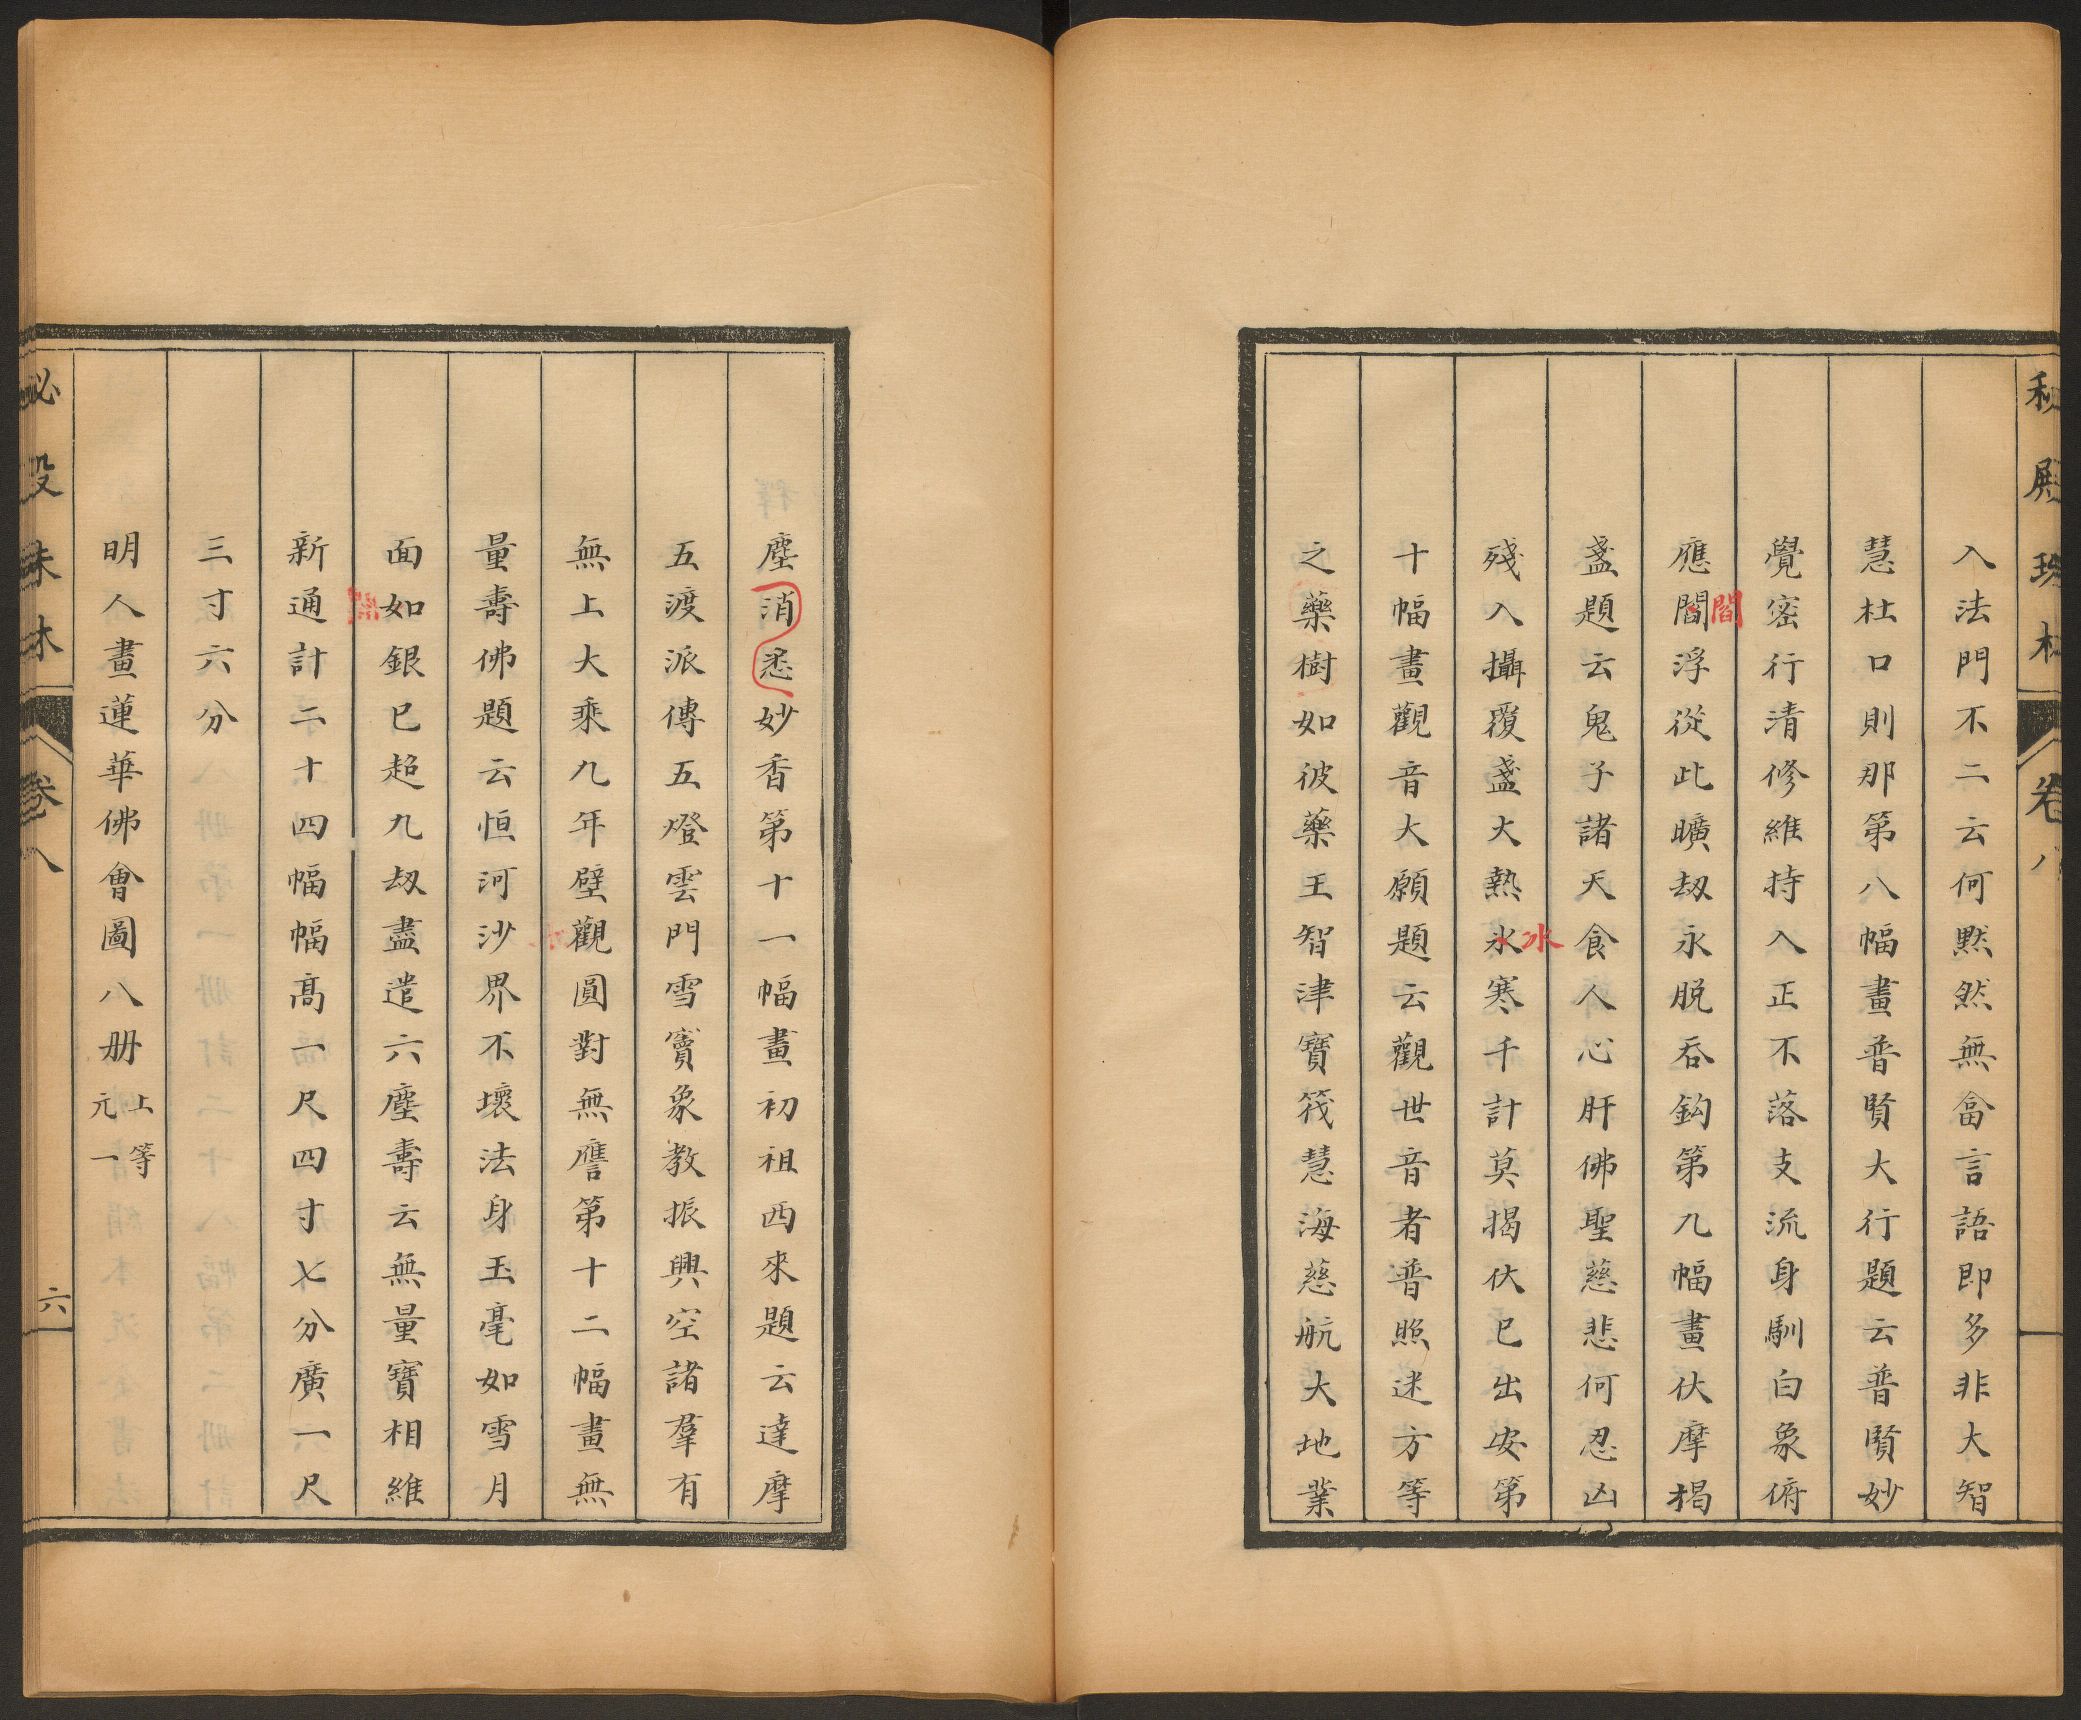 入法門不二云何默然無畣言語即多非大智
慧杜口則那第八幅畫普賢大行題云普賢妙
覺密行清修維持入正不落支流身馴白象俯
應閻浮從此曠刼永脱吞鈎第九幅畫伏摩揭
閻
盞題云鬼子諸天食人心肝佛聖慈悲何忍凶
殘入攝覆盞大熱氷寒千計莫揭伏已出安第
冰
十幅畫觀音大願題云觀世音者普照迷方等
之藥樹如彼藥王智津寶筏慧海慈航大地業
塵消悉妙香第十一幅畫初祖西來題云達摩
五渡派傳五燈雲門雪竇象教振興空諸羣有
無上大乘九年壁觀圓對無譍第十二幅畫無
量壽佛題云恒河沙界不壞法身玉毫如雪月
面如銀已超九刼盡遣六塵壽云無量寶相維
新通計二十四幅幅高一尺四寸七分廣一尺
三寸六分
明人畫蓮華佛會圖八册上等元一
卷八
六